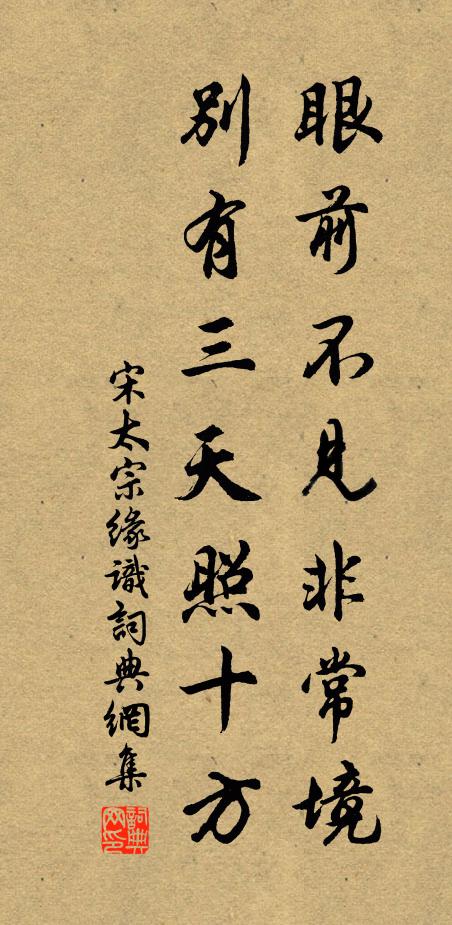 眼前不見非常境
別有三天照十方
宋太宗緣識詞典網集
詞典网印